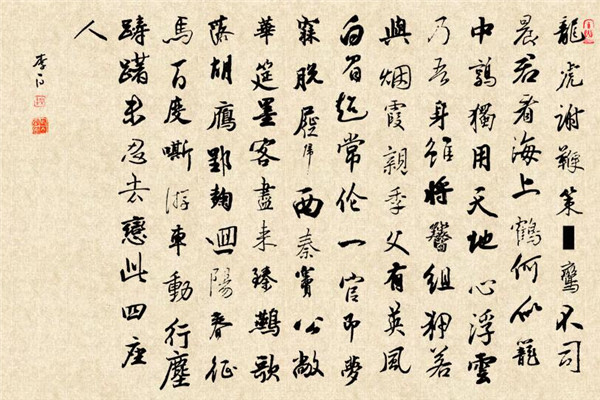 龍虎谢鞭策■鸞不司
晨君看海上鶴何似籠
中鶉獨用天地心浮雲
乃吾身雖將簪組狎若
與烟霞親季父有英風
白眉超常伦一官即夢
寐脱屣归西秦竇公敞
華筵墨客盡来臻鷰歌
落胡鷹郢麯迴陽春征
馬百度嘶游車動行塵
躊躇未忍去戀此四座
人
李白